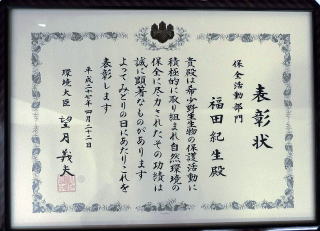 表彰状
保全活動部門
福田紀生殿
貴殿は希少野生生物の保護活動に
積極的に取り組まれ自然環境の
保全に尽力されたその功績は
誠に顕著なものがあります
よってみどりの日にあたりこれを
表彰します
平成二十七年四月二十二日
環境大臣 望月義夫